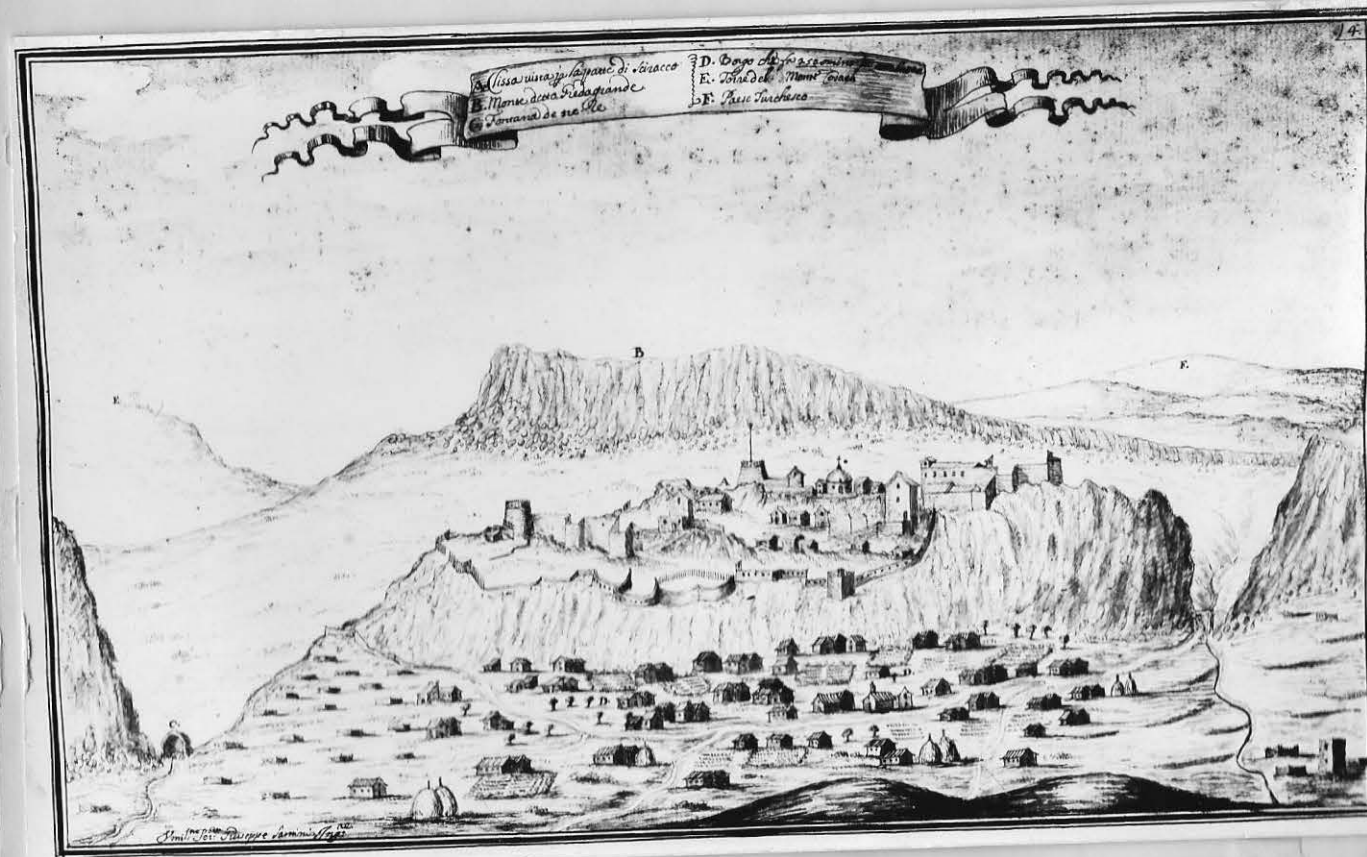 14
A. Clissa vista p la parte di Siracco
B. Monte detto Piedagrande
C. Fontana de tre Re
D. Borgo che fa
E. Torre del Monte
F. Paese Turchesco
B
F.
E.
C
Giuseppe Santini Ing.re